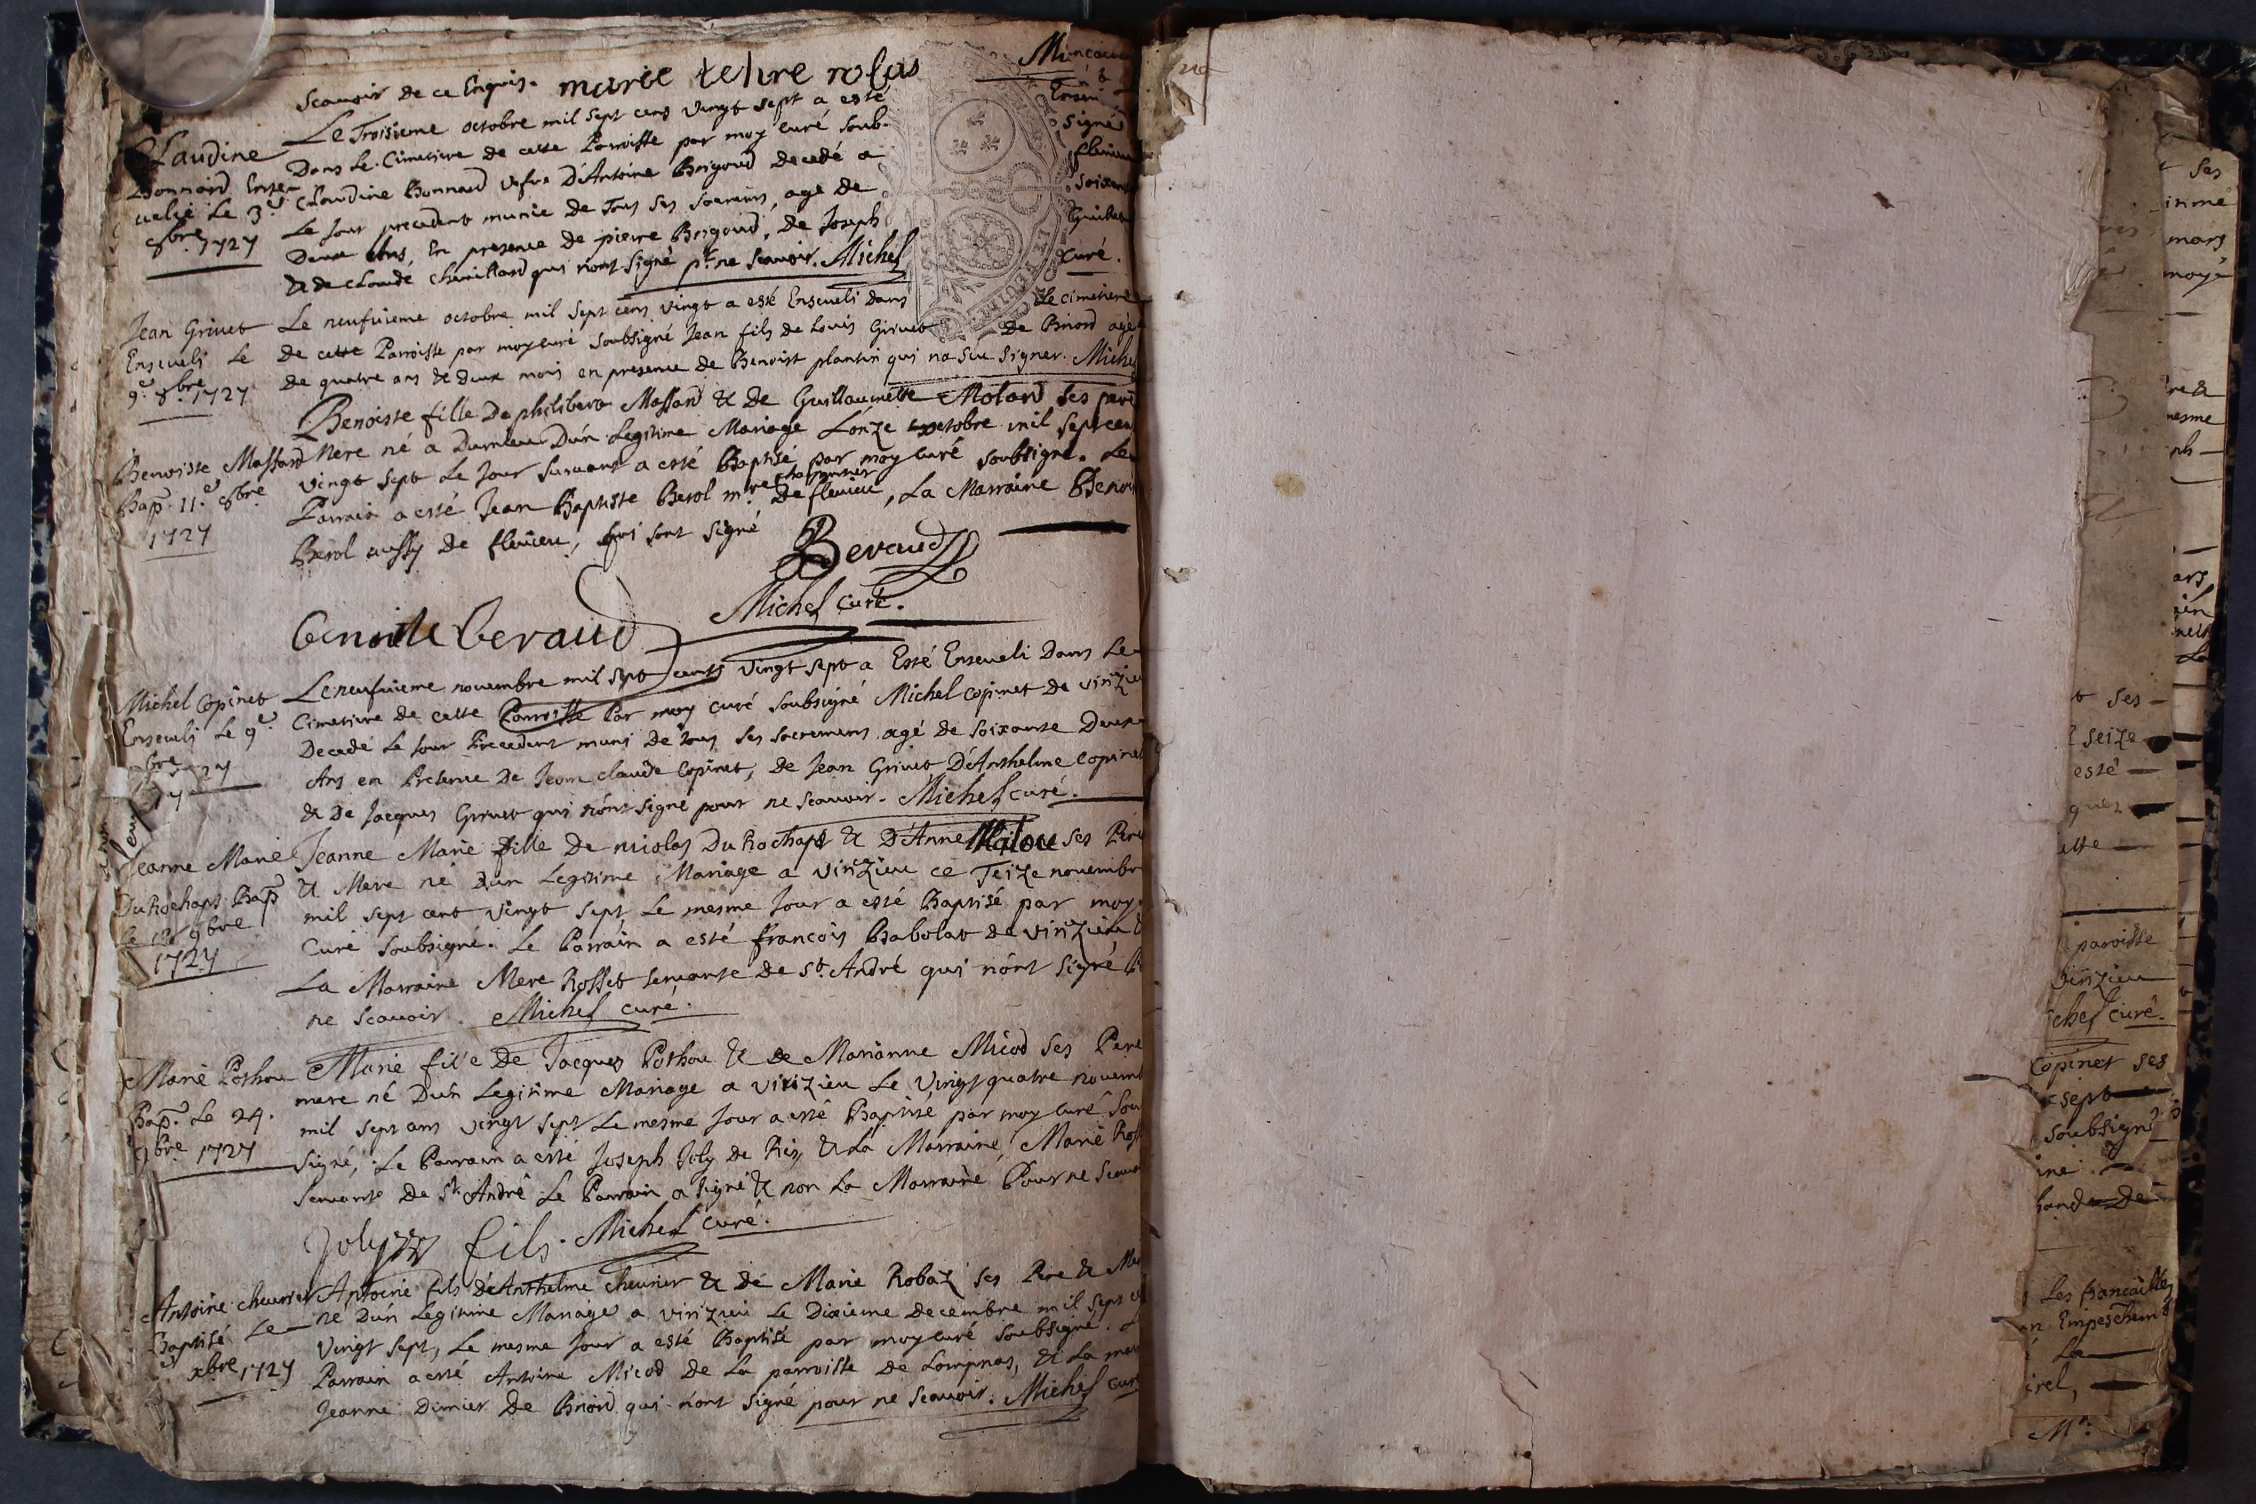 Scauoir de ce Enquis. marie
Claudine
Bonnard Ense-
uelie Le 3.e
8bre 1727
Le Troisieme octobre mil sept cens vingt sept a esté
Dans Le Cimetiere de cette Parroisse par moy curé soub-
Claudine Bonnard vefve D'Antoine Brigoud Decedé a
Le Jour precedent munie de Tous ses sacremens, agé de
Deux ans, En presence de pierre Brigoud, de Joseph
& de Claude chemillard qui n'ont signé pr. ne scauoir. Michel
Ensevi
signé
fleuieu
soixan
Guillau
curé.
Jean Griuet
Enseueli Le
9.e 8.bre 1727
Le neufuieme octobre mil sept cens vingt a esté Enseueli dans Le cimetiere
de cette Parroisse par moy curé soubsigné Jean fils de Louis Griuet de Briord agé
de quatre ans & deux mois en presence de Benoist plantin qui na sceu signer. Michel
Benoiste Massard
Bap. 11.e 8bre
1727
Benoiste fille De philibert Massard & de Guillaumette Molard ses pere
Mere né a Dun Legitime Mariage Lonze octobre mil sept cen
vingt sept Le Jour suivant a esté Baptisé par moy curé soubsigné. Le
Parrain a esté Jean Baptiste Berol m.re charpentier De fleuieu, La Marraine Benoi
Berol aussy de fleuieu, qui sont signé Beraud
Michel curé.
benoite beraud
Michel Copinet
Enseueli Le 9.e
Le neufuieme nouembre mil sept cents vingt sept a Esté Enseueli Dans Le
Cimetiere de cette Parroisse Par moy curé soubsigné Michel Copinet de virizieu
Decedé Le Jour Precedent muni de tous ses sacremens agé de soixante Deux
Ans en Presence De Jean claude Copinet, de Jean Griuet D'Anthelme Copinet
& De Jacques Griuet qui n'ont signé pour ne scauoir. Michel curé.
Jeanne Marie
DuRochaps Bap
9bre
1727
Jeanne Marie fille De nicolas DuRochaps & D'Anne Milou ses Pere
& Mere né Dun Legitime Mariage a virizieu ce Treize nouembre
mil sept cent vingt sept Le mesme Jour a esté Baptisé par moy
Curé soubsigné. Le Parrain a esté francois Babolat de virizieu &
La Marraine Mere Rosset seruante de st. André qui n'ont signé
ne scauoir. Michel curé.
Marie Pothou
Bap. Le 24.
9bre 1727
Marie fille De Jacques Pothou & de Marianne Micod ses Pere
mere né Dun Legitime Mariage a virizieu Le Vingt quatre nouemb
mil sept ans vingt sept Le mesme Jour a esté Baptisé par moy curé Sou
signé, Le Parrain a esté Joseph Joly de Rix, & La Marraine, Marie Ros
seruante De St. André Le Parrain a signé & non La Marraine Pour ne scauoi
Joly fils. Michel curé.
Antoine cheurier
Baptisé Le
xbre 1727
Antoine fils d'Anthelme cheurier & de Marie Robaz ses Pere & Me
né Dun Legitime Mariage a virizieu Le Dixieme decembre mil sept c
Vingt sept, Le mesme Jour a esté Baptisé par moy curé soubsigné. L
Parrain a esté Antoine Micod de La parroisse de Lompnas, & La mar
Jeanne Dimier De Briord qui n'ont signé pour ne scauoir. Michel cur
ses
mars
moyé
mesme
ses
seize
esté
parroisse
virizieu
chel curé.
Copinet ses
sept
soubsigné
Les fiancailles
Empeschem
La